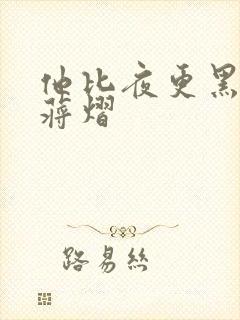 他比夜更黑
蒋熠
路易丝